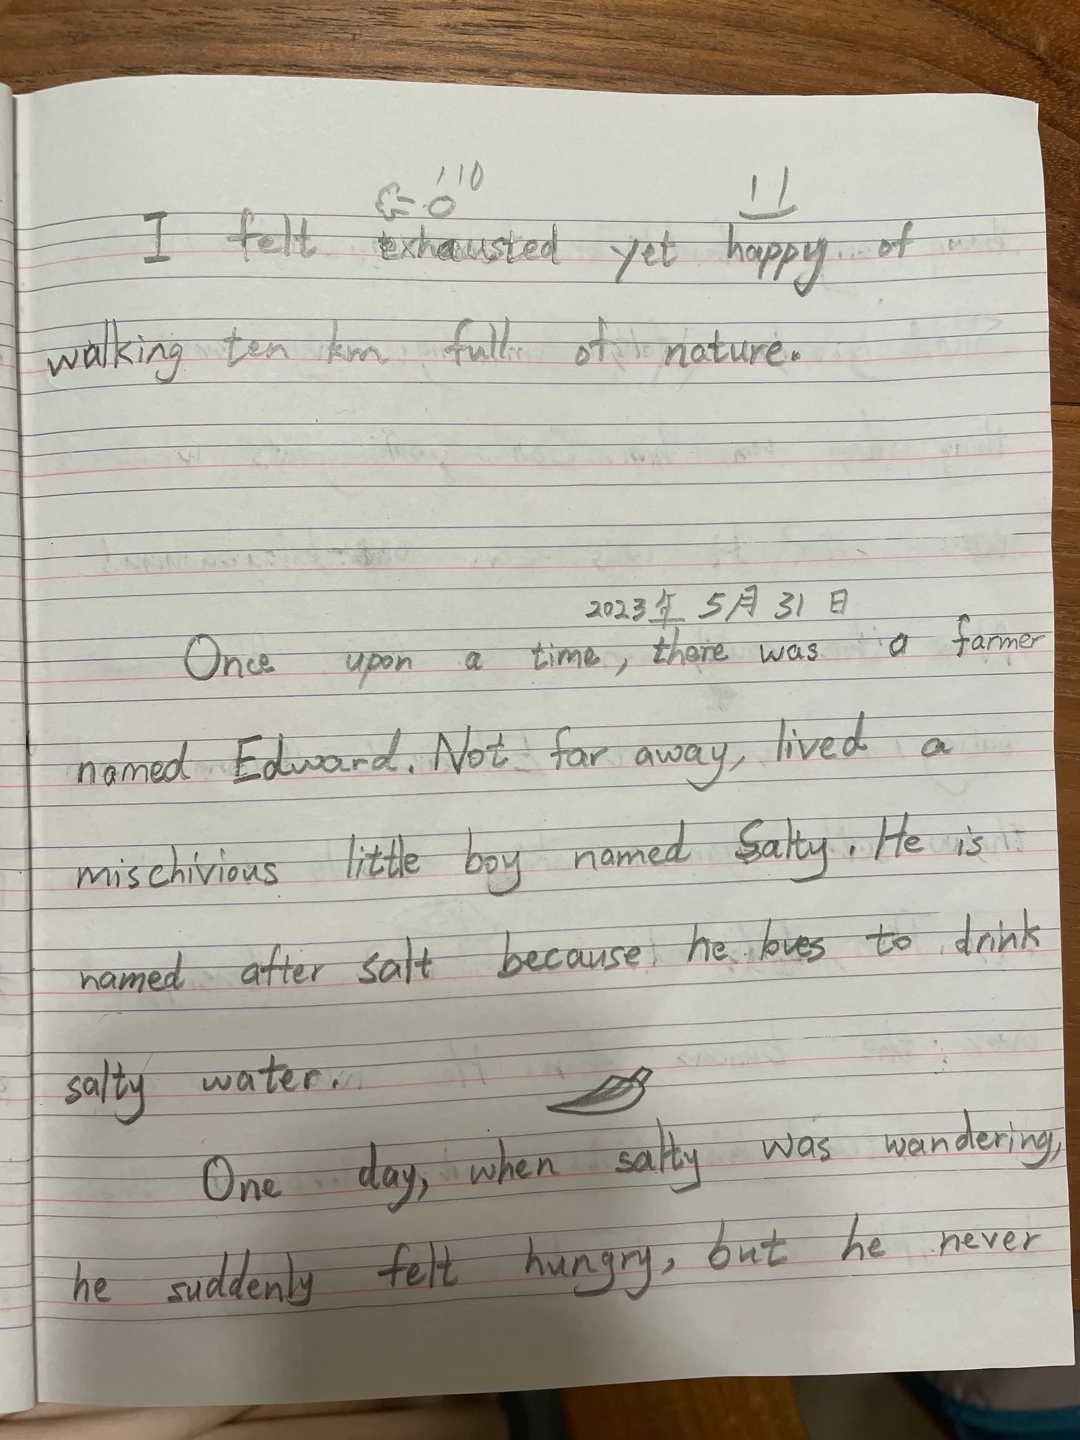 I felt exhausted yet happy of
walking ten km full of nature.
2023年 5月 31 日
Once upon a time, there was a farmer
named Edward. Not far away, lived a
mischivious little boy named Salty. He is
named after salt because he loves to drink
salty water.
One day, when salty was wandering,
he suddenly felt hungry, but he never